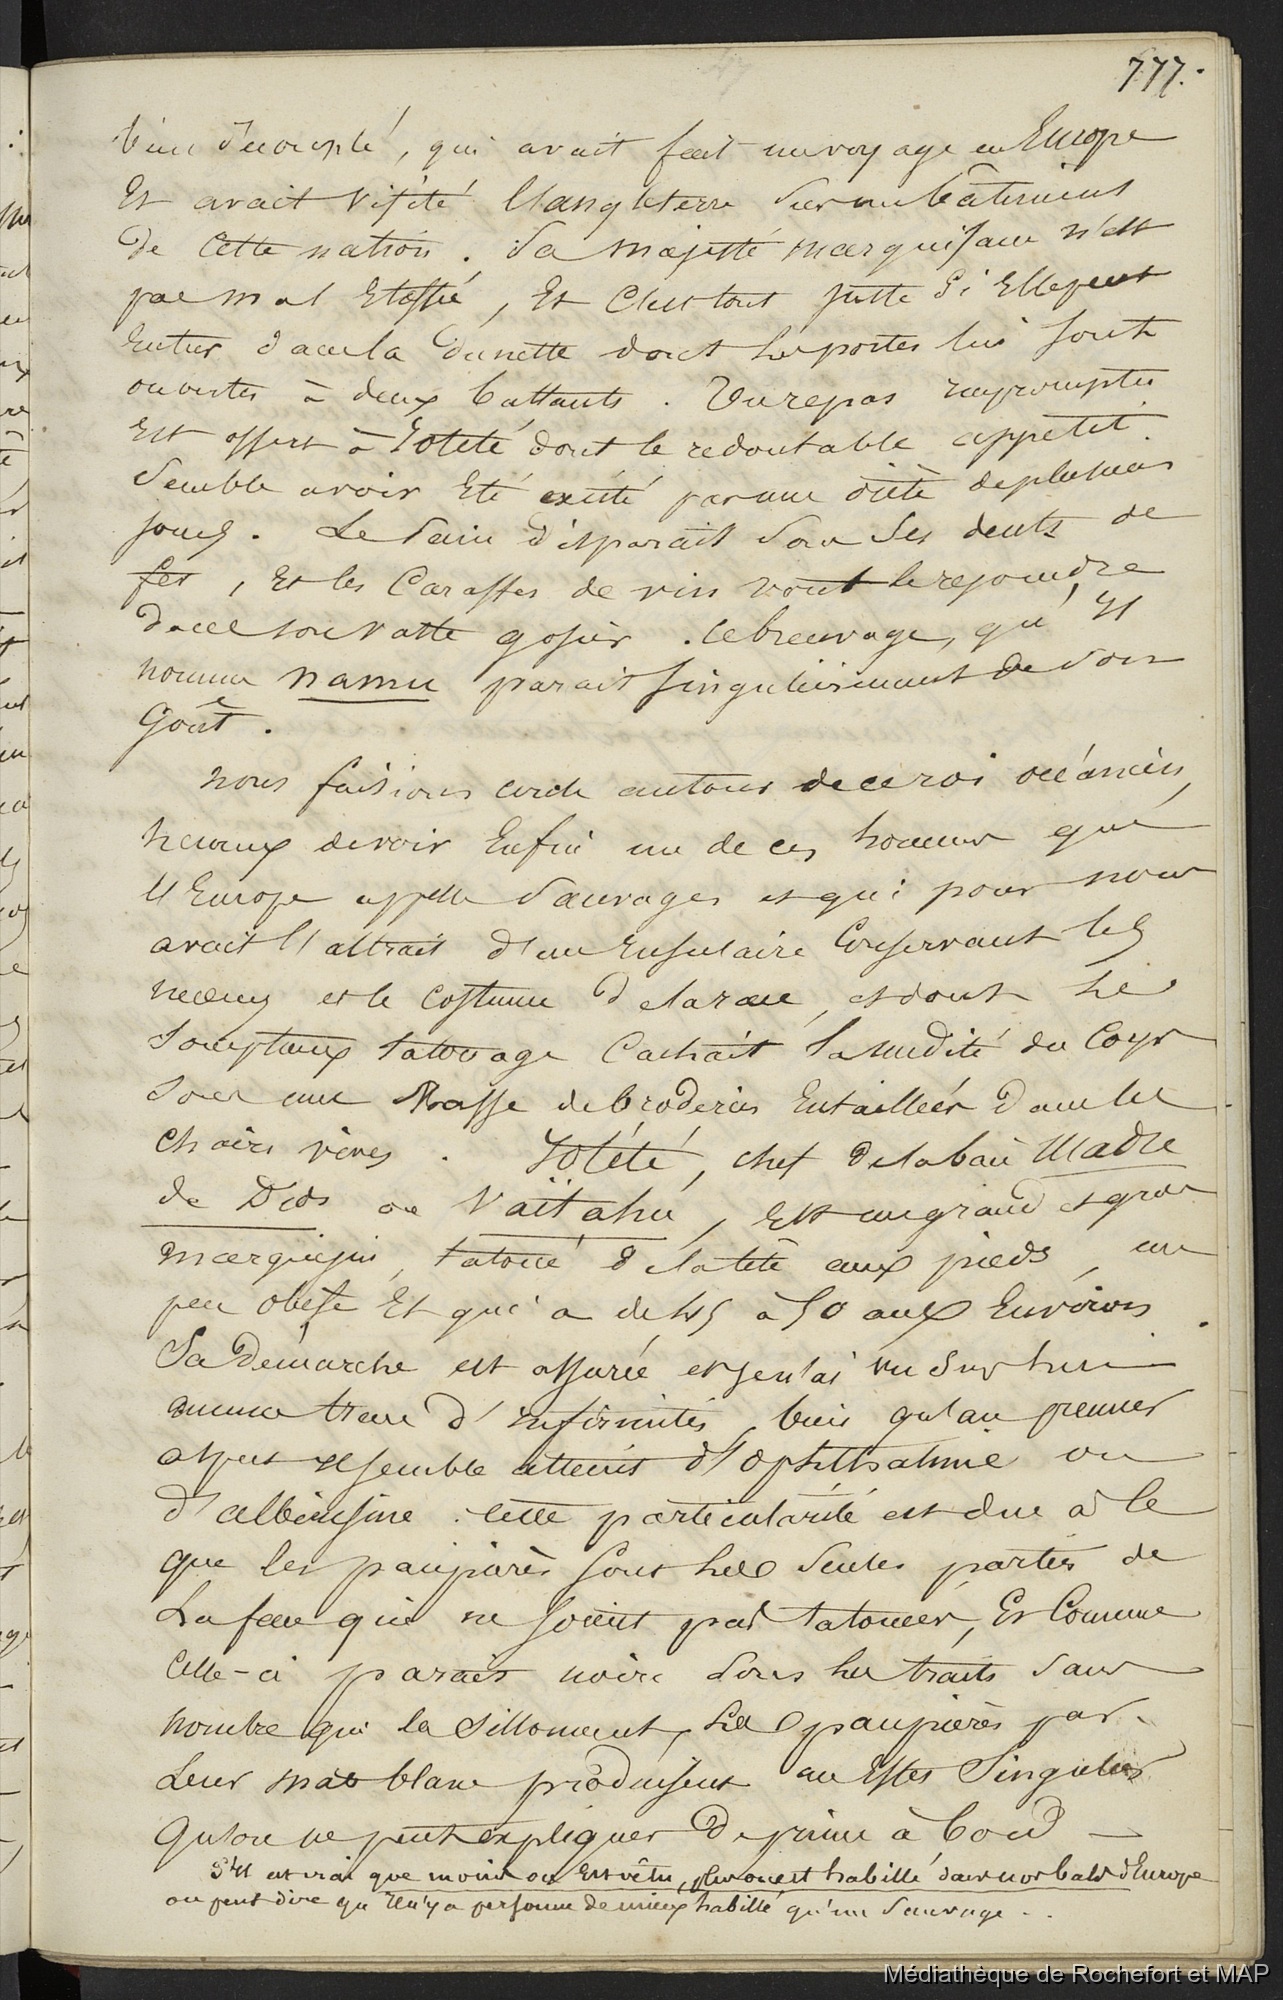 777.
bien découplé, qui avait fait un voyage en Europe
Et avait visité l'angleterre sur un bâtiment
de Cette nation. Sa majesté marquisanne n'est
pas mal Etoffée, Et C'est tout juste si Elle peut
Entrer dans la dunette dont les portes lui sont
ouvertes à deux battants. Un repas impromptu
Est offert à Iotété dont le redoutable appétit
Semble avoir Eté excité par une diète de plusieurs
jours. Le pain disparait sous ses dents de
fer, Et les Caraffes de vin vont le rejoindre
dans son vaste gosier. Ce breuvage, qu'il
nomme namu parait singulièrement de son
Goût.
nous faisions cercle autour de ce roi océanien,
heureux de voir Enfin un de ces hommes que
l'Europe appelle Sauvages et qui pour nous
avait l'attrait d'un Insulaire Conservant les
moeurs et le costume de la race, et dont le
somptueux tatouage Cachait la nudité du Corps
sous une Masse de broderies Entaillées dans les
chairs vives. Iotété, chef de la baie Madre
de Dios ou Vaïtahu, Est un grand et gros
marquisien, tatoué de la tête aux pieds, un
peu obèse Et qui a de 45 à 50 ans Environ.
Sa Démarche est assurée et je n'ai vu sur lui
aucune trace d'infirmités, bien qu'au premier
aspect il semble atteint d'ophtthalmie ou
d'albinisme : cette particularité est due à ce
que les paupières sont les seules parties de
La face qui ne soient pas tatouées, Et Comme
Celle-ci parait noire sous les traits sans
nombre qui la sillonnent, les paupières par
Leur mat blanc produisent un Effet Singulier
Qu'on ne peut expliquer De prime à bord —
S'il est vrai que moins on Est vêtu, plus on est habillé dans nos bals d'Europe
on peut dire qu'il n'y a personne de mieux habillé qu'un Sauvage...
Médiathèque de Rochefort et MAP